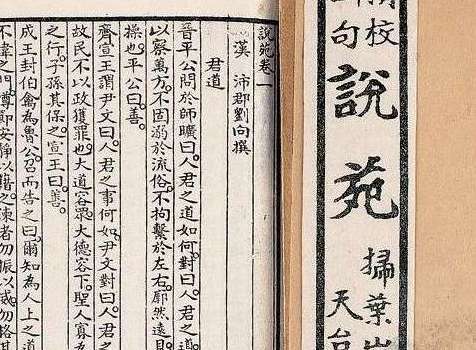 校
句
說苑
掃葉山
天台
說苑卷一
漢 沛郡劉向撰
君道
晉平公問於師曠曰。人君之道如何。對曰。人君之
以察萬方。不固溺於流俗。不拘繫於左右。廓然遠目
操也。平公曰。善。
齊宣王謂尹文曰。人君之事何如。尹文對曰。人君之
故民不以政獲罪也。大道容眾。大德容下。聖人寡
之行。子孫其保之。宣王曰。善。
成王封伯禽為魯公。召而告之曰。爾知為人上之道
不諱之門。撙節安靜以藉之。諫者勿振以威。勿格其